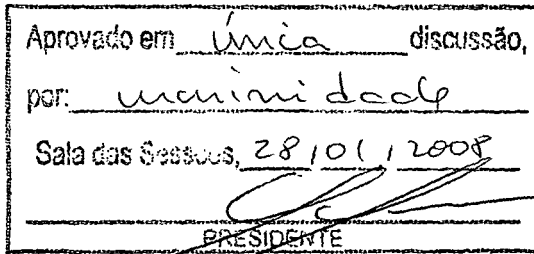 Aprovado em única discussão,
por: unanimidade
Sala das Sessões, 28/01/2008
PRESIDENTE